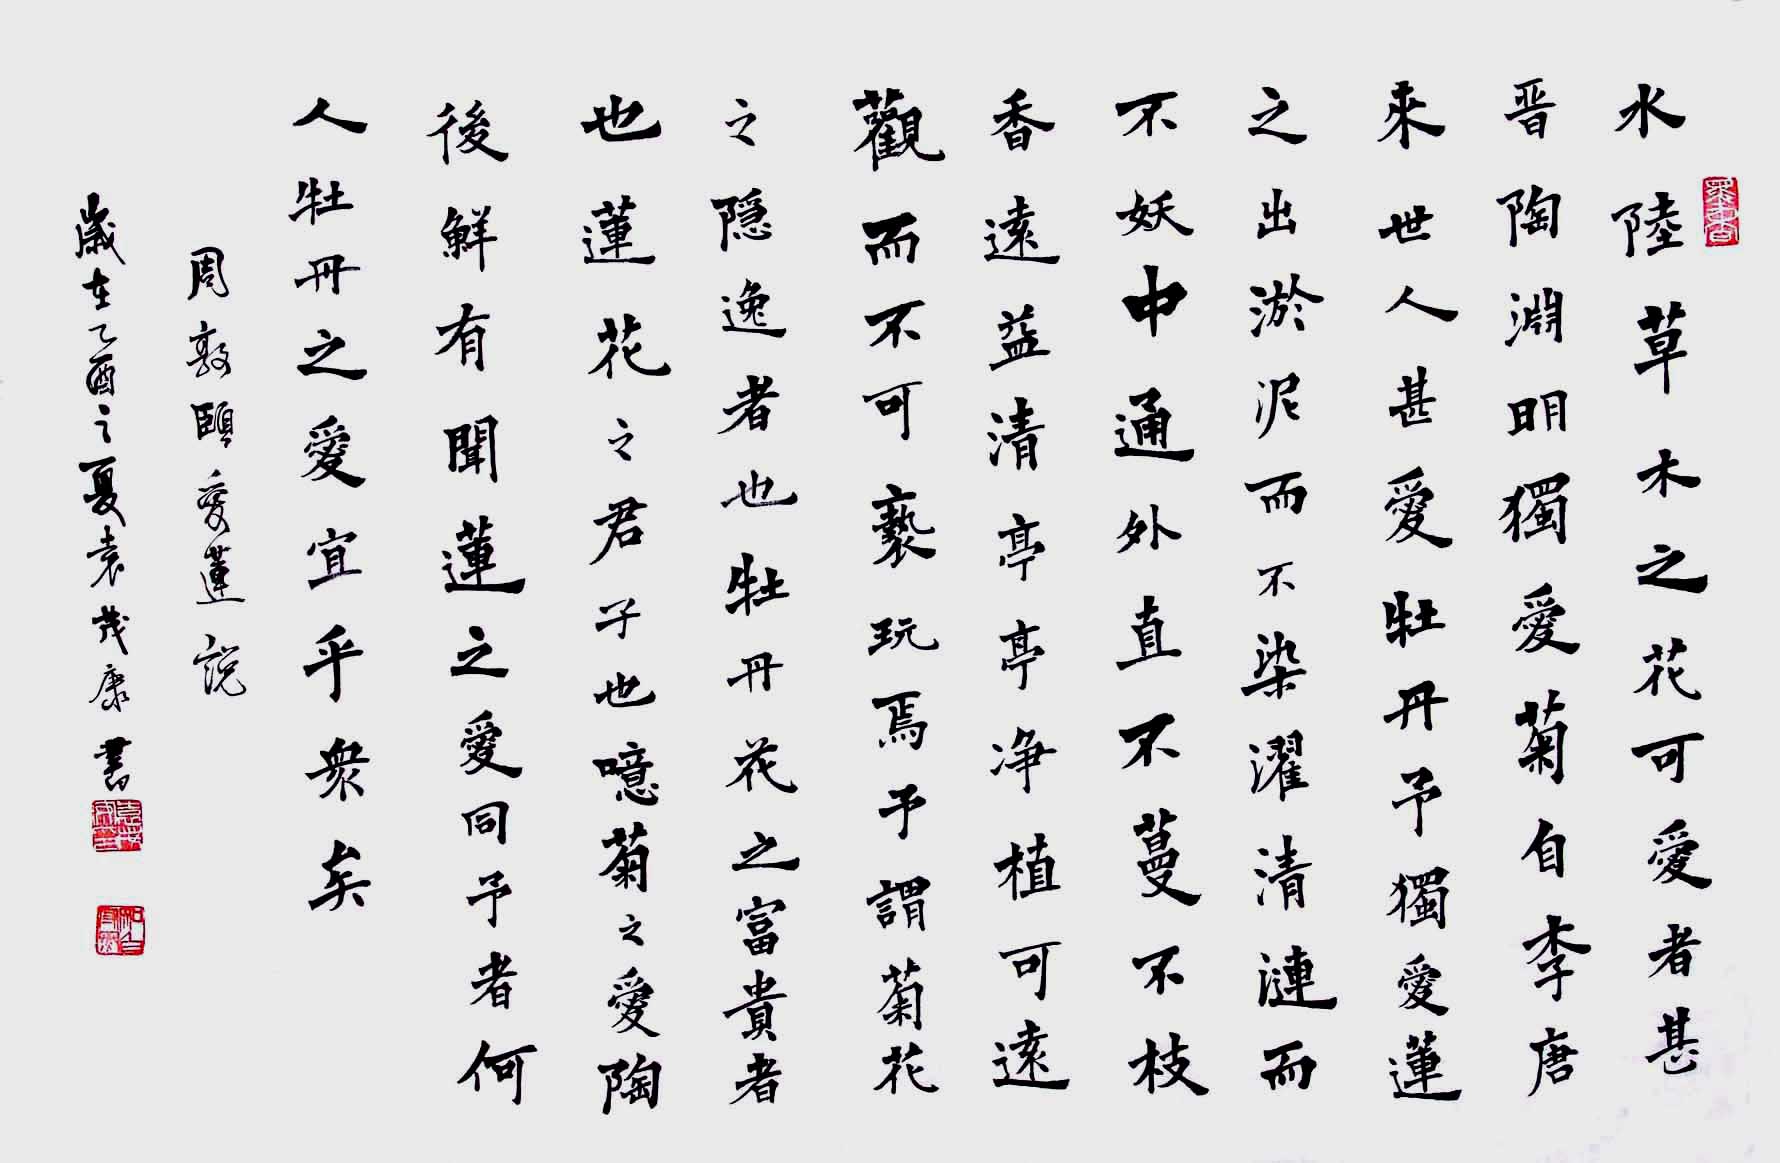 水陸草木之花可愛者甚
晋陶淵明獨愛菊自李唐
來世人甚愛牡丹予獨愛蓮
之出淤泥而不染濯清漣而
不妖中通外直不蔓不枝
香遠益清亭亭净植可遠
觀而不可褻玩焉予謂菊花
之隱逸者也牡丹花之富貴者
也蓮花之君子也噫菊之愛陶
後鮮有聞蓮之愛同予者何
人牡丹之愛宜乎衆矣
周敦頤愛蓮説
歲在乙酉之夏袁茂康書